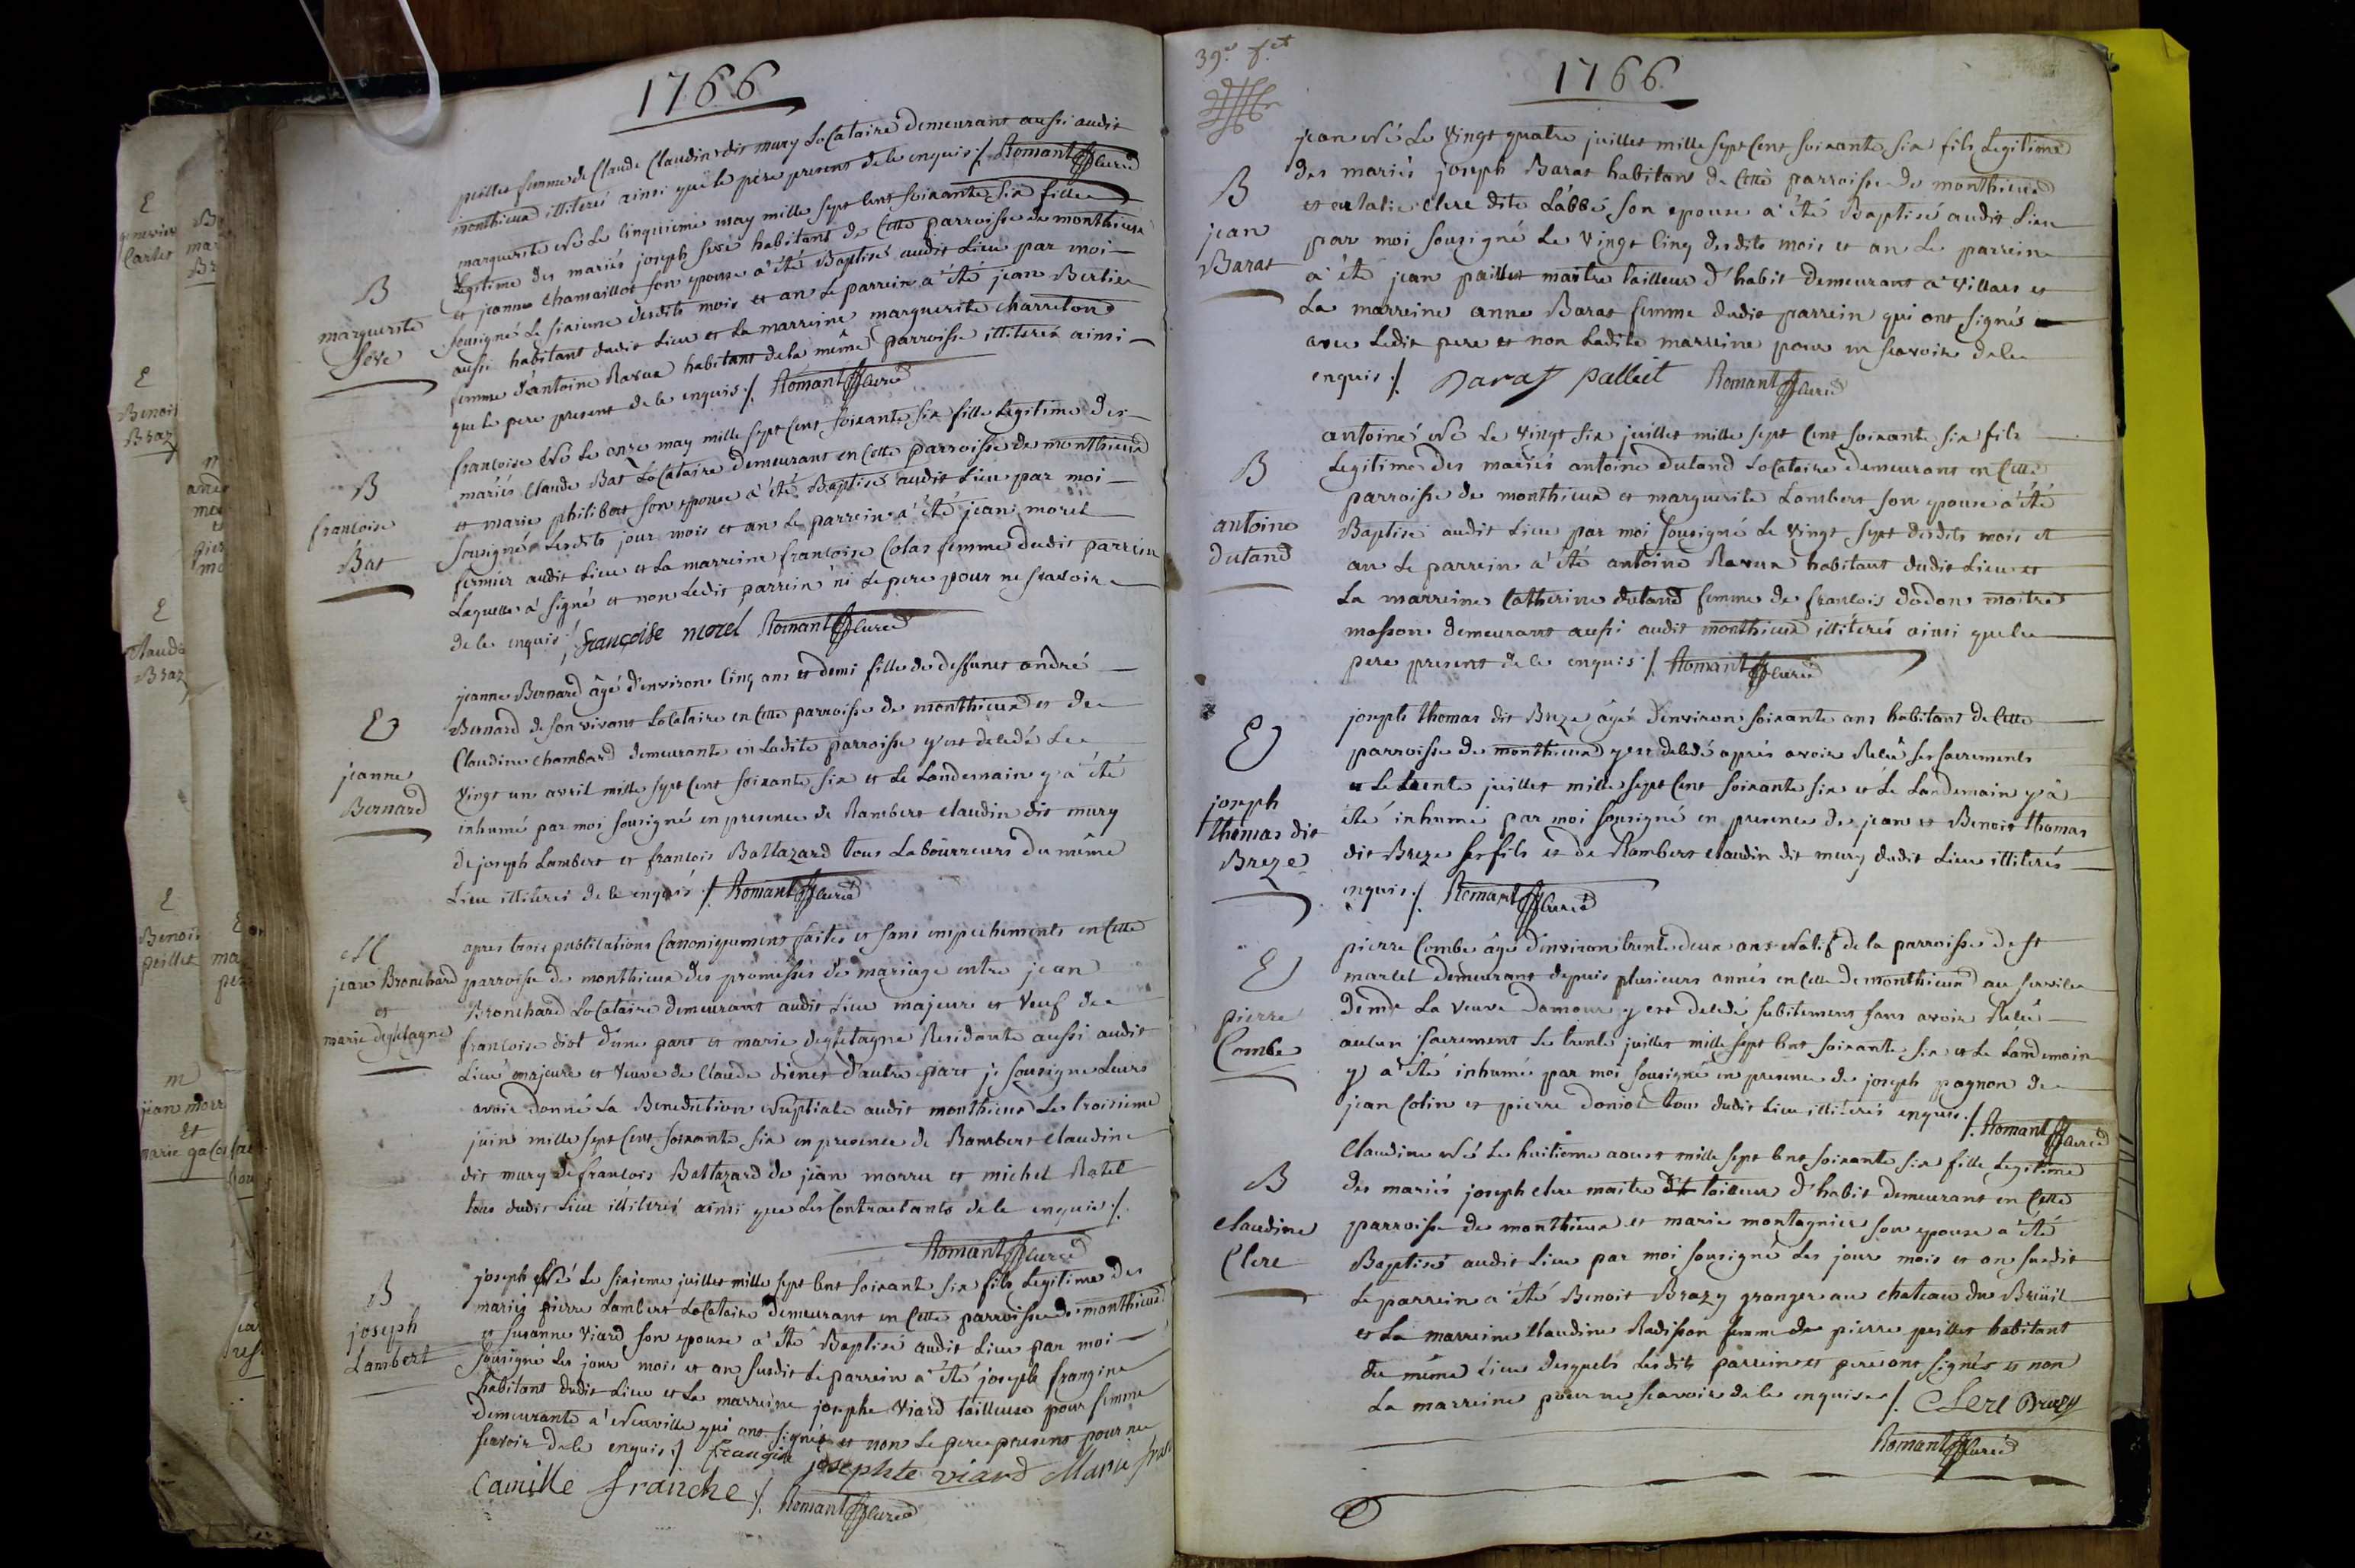 1766
peillet femme de Claude Claudin dit mury Locataire demeurant aussi audit
monthieux illiterés ainsi que le père present de le enquis ./. Romant Curé
B
marguerite
Seve
marguerite Né Le Cinquieme may mille sept Cent soixante six fille
Legitime des mariés joseph seve habitant de Cette parroisse de monthieux
et jeanne Chamaillot son epouse a été Baptisé audit Lieu par moi
sousigné Le sixieme desdits mois et an Le parrein a été jean Berlier
aussi habitant dudit Lieu et La marreine marguerite Charreton
femme d'antoine Ravux habitant de la même parroisse illiterés ainsi
que le pere present de le enquis ./. Romant Curé
B
francoise
Bat
francoise Né Le onze may mille sept Cent soixante six fille Legitime des
mariés Claude Bat Locataire demeurant en Cette parroisse de monthieux
et marie philibert son epouse a été Baptisé audit Lieu par moi
sousigné Lesdits jour mois et an Le parrein a été jean morel
fermier audit Lieu et La marreine francoise Colas femme dudit parrein
Laquelle a signé et non Ledit parrein ni Le pere pour ne scavoir
de le enquis ./. françoise morel Romant Curé
E
jeanne
Bernard
jeanne Bernard âgé d'environ Cinq ans et demi fille de deffunct andré
Bernard de son vivant Locataire en Cette parroisse de monthieux et de
Claudine Chambard demeurante en Ladite parroisse y est decedé Le
vingt un avril mille sept Cent soixante six et Le Landemain y a été
inhumé par moi sousigné en presence de Rambert Claudin dit mury
de joseph Lambert et francois Baltazard tous Laboureurs du même
Lieu illiterés de le enquis ./. Romant Curé
M
jean Bronchard
et
marie degletagne
apres trois publications Canoniquement faites et sans empechements en Cette
parroisse de monthieux des promesses de mariage entre jean
Bronchard Locataire demeurant audit Lieu majeur et Veuf de
francoise diot d'une part et marie degletagne Residante aussi audit
Lieu majeure et Veuve de Claude dienet d'autre part je sousigne Leurs
avoir donné La Benediction Nuptiale audit monthieux Le troisieme
juin mille sept Cent soixante six en presence de Rambert Claudin
dit mury de francois Baltazard de jean morru et michel Ratel
tous dudit Lieu illiterés ainsi que Les Contractants de le enquis ./.
Romant Curé
B
joseph
Lambert
joseph Né Le sixieme juillet mille sept Cent soixante six fils Legitime des
mariés pierre Lambert Locataire demeurant en Cette parroisse de monthieux
et susanne Viard son epouse a été Baptisé audit Lieu par moi
sousigné Les jour mois et an susdit Le parrein a été joseph frangine
habitant dudit Lieu et La marreine josephe Viard tailleuse pour femme
demeurante a Neuville qui ont signés et non Le pere present pour ne
scavoir de le enquis ./. frangine josephte viard Marie
Camille franche ./. Romant Curé
39e f.et
1766
B
jean
Barat
jean Né Le Vingt quatre juillet mille sept Cent soixante six fils Legitime
des mariés joseph Barat habitant de Cette parroisse de monthieux
et Clere dite L'abbé son epouse a été Baptisé audit Lieu
par moi sousigné Le Vingt Cinq desdits mois et an Le parrein
a été jean paillet maitre tailleur d'habit demeurant a Villars et
La marreine anne Barat femme dudit parrein qui ont signés
avec Ledit pere et non Ladite marreine pour ne scavoir de le
enquis ./. Barat palliet Romant Curé
B
antoine
dutand
antoine Né Le Vingt six juillet mille sept Cent soixante six fils
Legitime des mariés antoine dutand Locataire demeurant en Cette
parroisse de monthieux et marguerite Lambert son epouse a été
Baptisé audit Lieu par moi sousigné Le Vingt sept desdits mois et
an Le parrein a été antoine Ravux habitant dudit Lieu et
La marreine Catherine dutand femme de francois dodon maitre
masson demeurant aussi audit monthieux illiterés ainsi que le
pere present de le enquis ./. Romant Curé
E
joseph
thomas dit
Breze
joseph thomas dit Breze âgé d'environ soixante ans habitant de Cette
parroisse de monthieux y est decedé aprés avoir Recû ses sacrements
Le trente juillet mille sept Cent soixante six et Le Landemain y a
été inhumé par moi sousigné en presence de jean et Benoit thomas
dit Breze ses fils et de Rambert Claudin dit mury dudit Lieu illiterés
enquis ./. Romant Curé
E
pierre
Combe
pierre Combe âgé d'environ trente deux ans Natif de la parroisse de st
marcel demeurant depuis plusieurs annés en Cette de monthieux au service
de mde La Veuve Damour y est decedé subitement sans avoir Recû
aucun sacrement Le trente juillet mille sept Cent soixante six et Le Landemain
y a été inhumé par moi sousigné en presence de joseph pagnon de
jean Colin et pierre doniol tous dudit Lieu illiterés enquis ./. Romant Curé
B
Claudine
Clere
Claudine Né Le huitieme aoust mille sept Cent soixante six fille Legitime
des mariés joseph Clere maitre tailleur d'habit demeurant en Cette
parroisse de monthieux et marie montagnier son epouse a été
Baptisé audit Lieu par moi sousigné Les jour mois et an susdit
Le parrein a été Benoit Brazy granger au chateau du Breüil
et La marreine Claudine Radisson femme de pierre peillet habitant
du même Lieu desquels Lesdits parrein et pere ont signés et non
La marreine pour ne scavoir de le enquise ./. Clere Brazy
Romant Curé